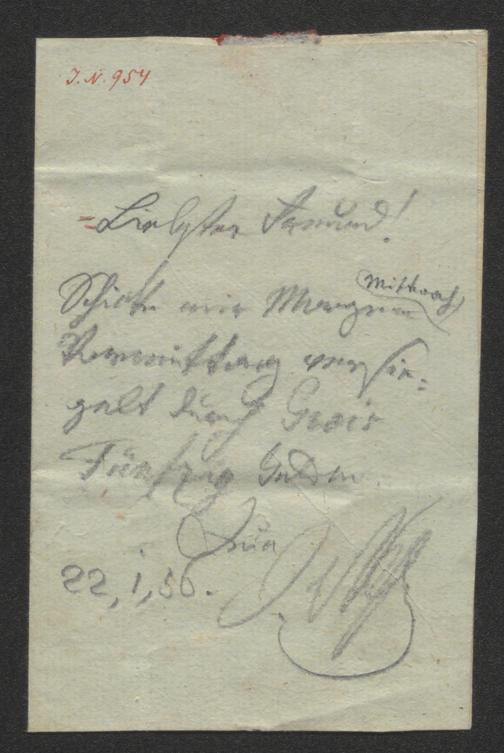 J. N. 954
Liebster Freund!
Schicke mir Morgen Mittwoch
Vormittag versie-
gelt durch
Fünfzig Gulden.
Dein
22, 1, 56.